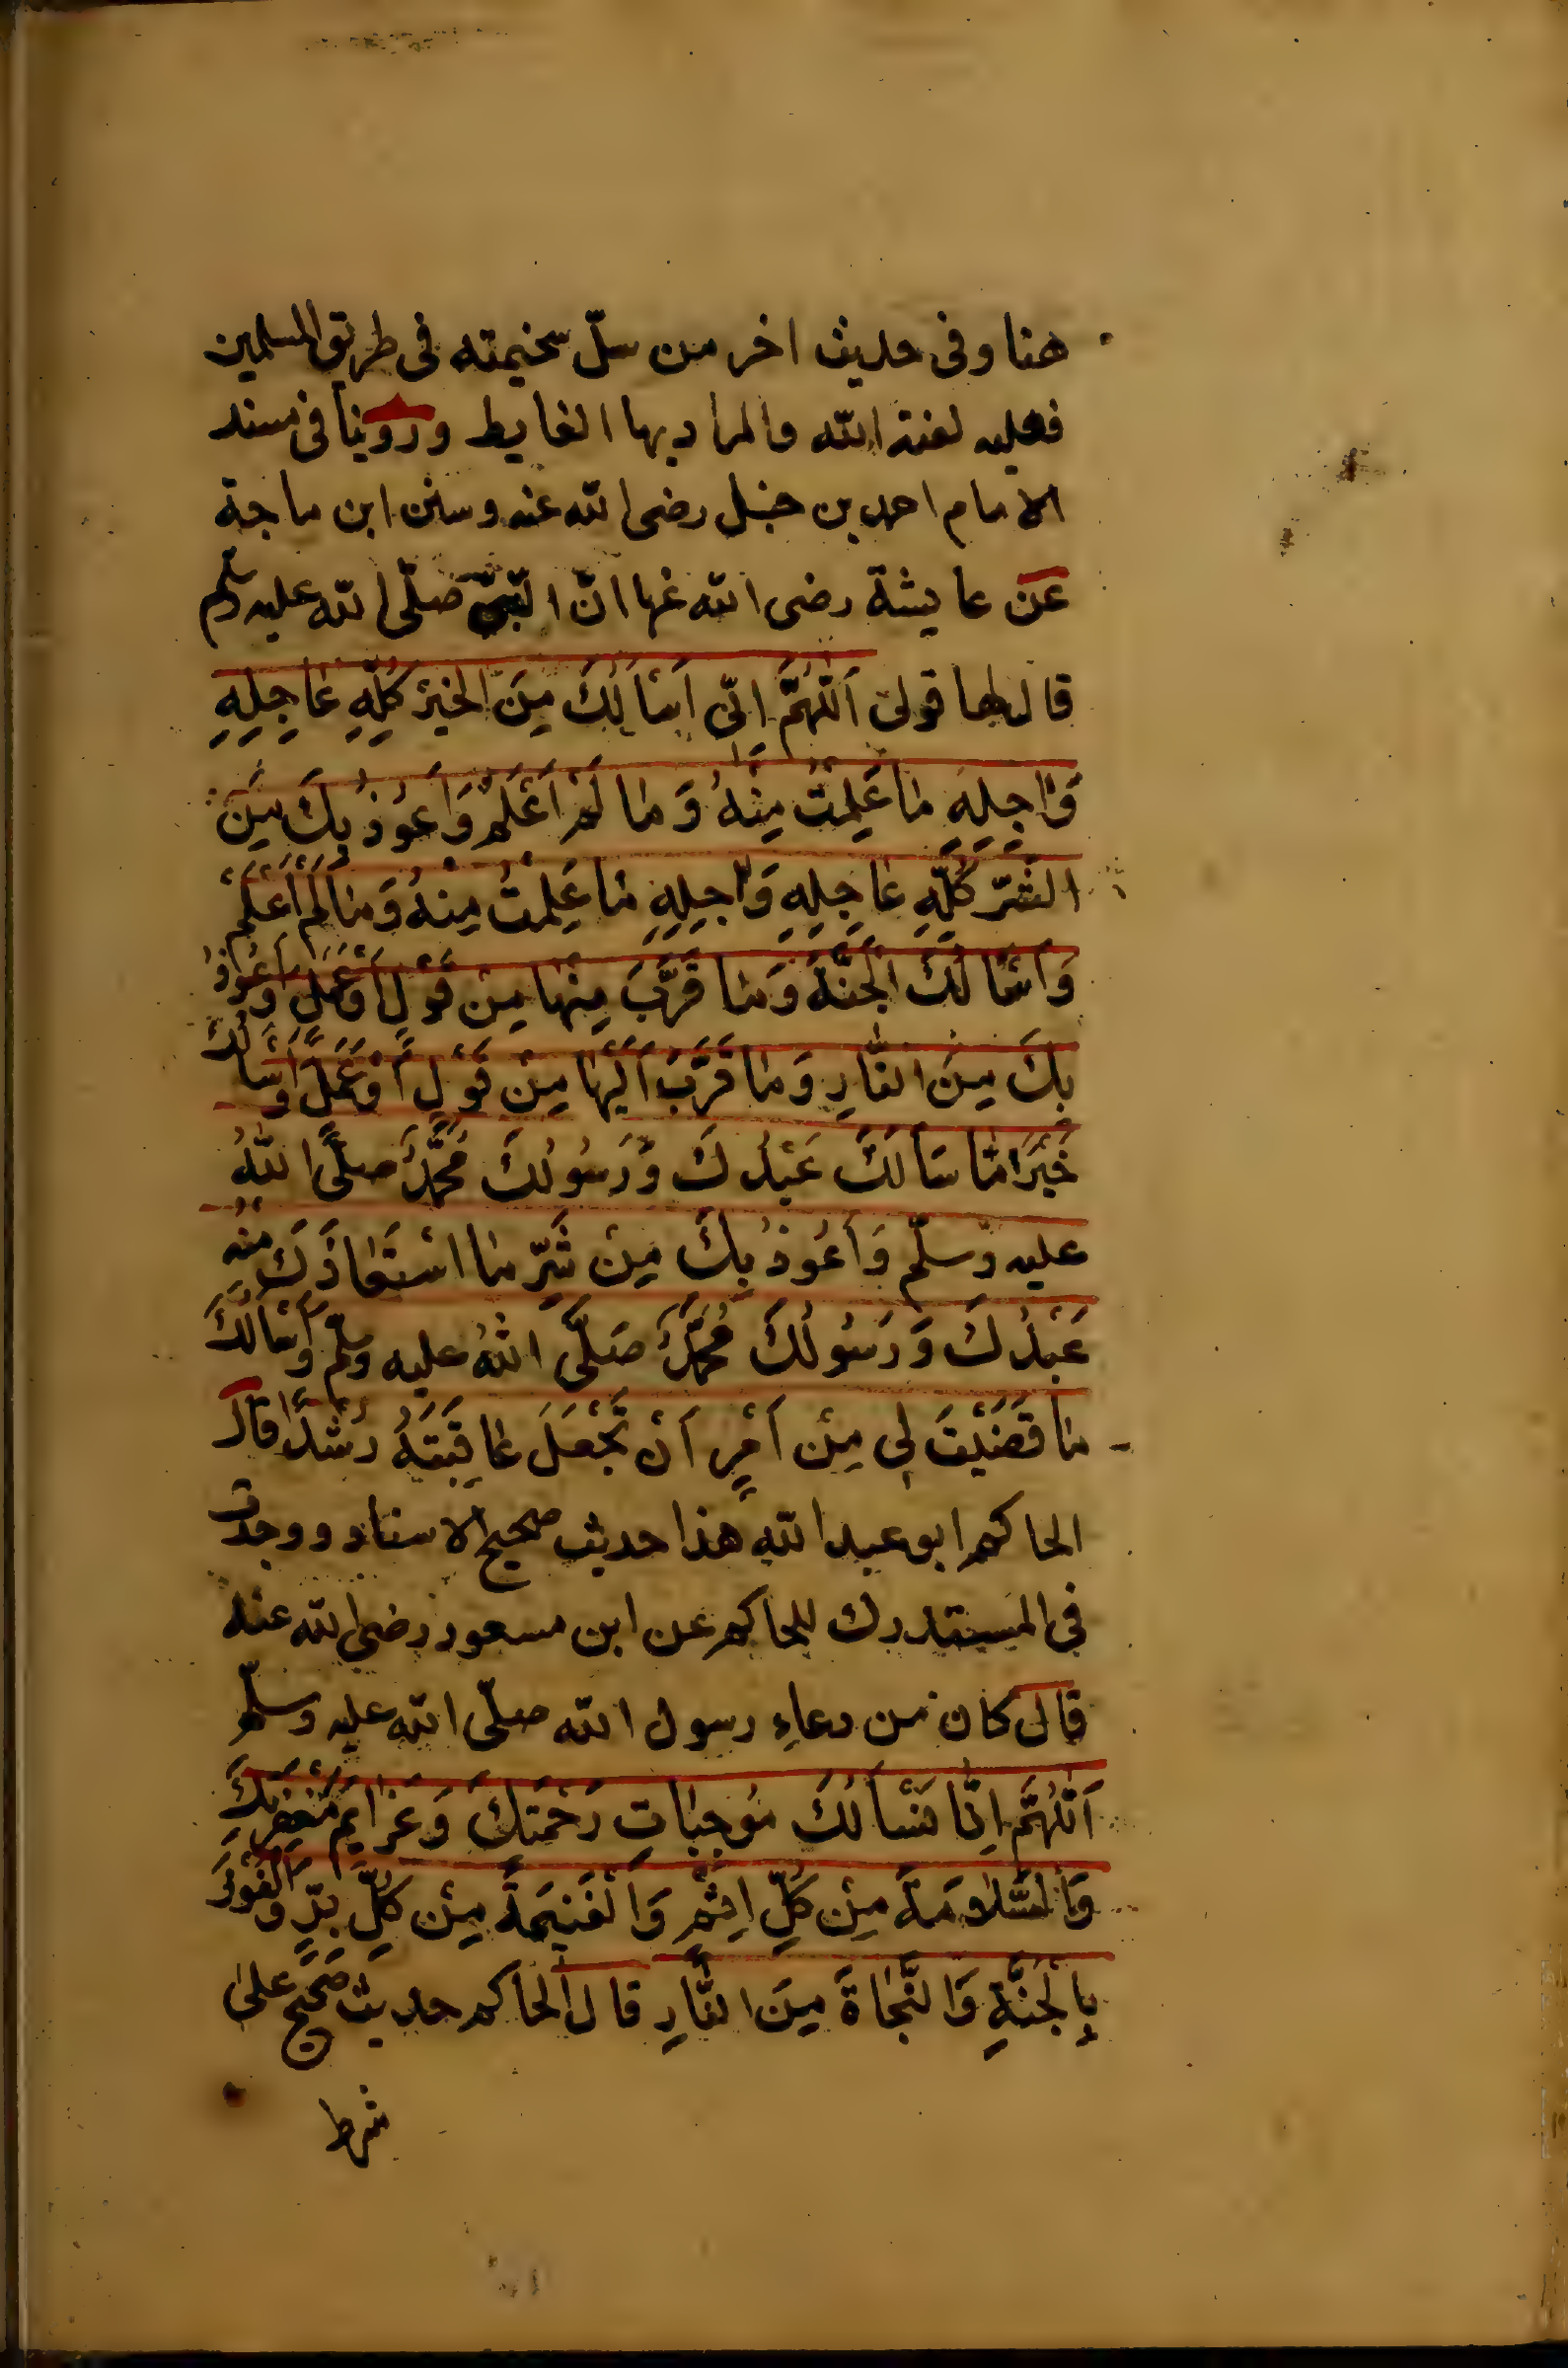 هنا وفى حديث اخر من سلّ سخيمته فى طريق المسلمين
فعليه لعنة الله والمراد بها الغايط وروينا فى مسند
الامام احمد بن حنبل رضى الله عنه وسنن ابن ماجة
عن عايشة رضى الله عنها انّ النّبىّ صلّى الله عليه وسلم
قال لها قولى اَللّٰهُمَّ اِنّى اَسْاَلُكَ مِنَ الخَيْرِ كُلِّهِ عَاجِلِهِ
وَاٰجِلِهِ مَا عَلِمْتُ مِنْهُ وَمَا لَمْ اَعْلَمْ وَاَعُوذُ بِكَ مِنَ
الشَّرِّ كُلِّهِ عَاجِلِهِ وَاٰجِلِهِ مَا عَلِمْتُ مِنْهُ وَمَا لَمْ اَعْلَمْ
وَاَسْاَلُكَ الْجَنَّةَ وَمَا قَرَّبَ مِنْهَا مِنْ قَوْلٍ اَوْ عَمَلٍ وَاَعُوذُ
بِكَ مِنَ النَّارِ وَمَا قَرَّبَ اِلَيْهَا مِنْ قَوْلٍ اَوْ عَمَلٍ وَاَسْاَلُكَ
خَيْرَ مَا سَاَلَكَ عَبْدُكَ وَرَسُولُكَ مُحَمَّدٌ صلَّى اللهُ
عليه وسلّم وَاَعُوذُ بِكَ مِنْ شَرِّ مَا اسْتَعَاذَكَ مِنْهُ
عَبْدُكَ وَرَسُولُكَ مُحَمَّدٌ صَلَّى اللهُ عليه وسلّم وَاَسْاَلُكَ
مَا قَضَيْتَ لِى مِنْ اَمْرٍ اَنْ تَجْعَلَ عَاقِبَتَهُ رُشْدًا قال
الحاكم ابو عبد الله هذا حديث صحيح الاسناد ووجدت
فى المستدرك للحاكم عن ابن مسعود رضى الله عنه
قال كان من دعاءِ رسول الله صلّى الله عليه وسلّم
اَللّٰهُمَّ اِنَّا نَسْاَلُكَ مُوجِبَاتِ رَحْمَتِكَ وَعَزَايِمَ مَغْفِرَتِكَ
وَالسَّلَامَةَ مِنْ كُلِّ اِثْمٍ وَالْغَنِيمَةَ مِنْ كُلِّ بِرٍّ وَالْفَوْزَ
بِالْجَنَّةِ وَالنَّجَاةَ مِنَ النَّارِ قال الحاكم حديث صحيح على
شرط